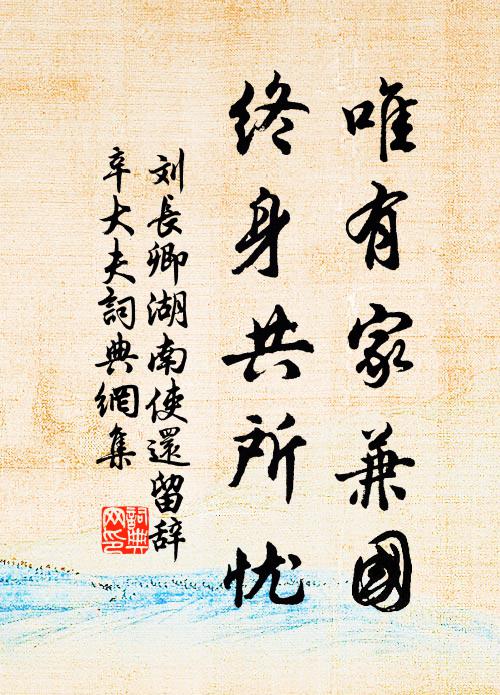 唯有家兼國
終身共所忧
刘長卿湖南使還留辞
辛大夫詞典網集
詞典网印